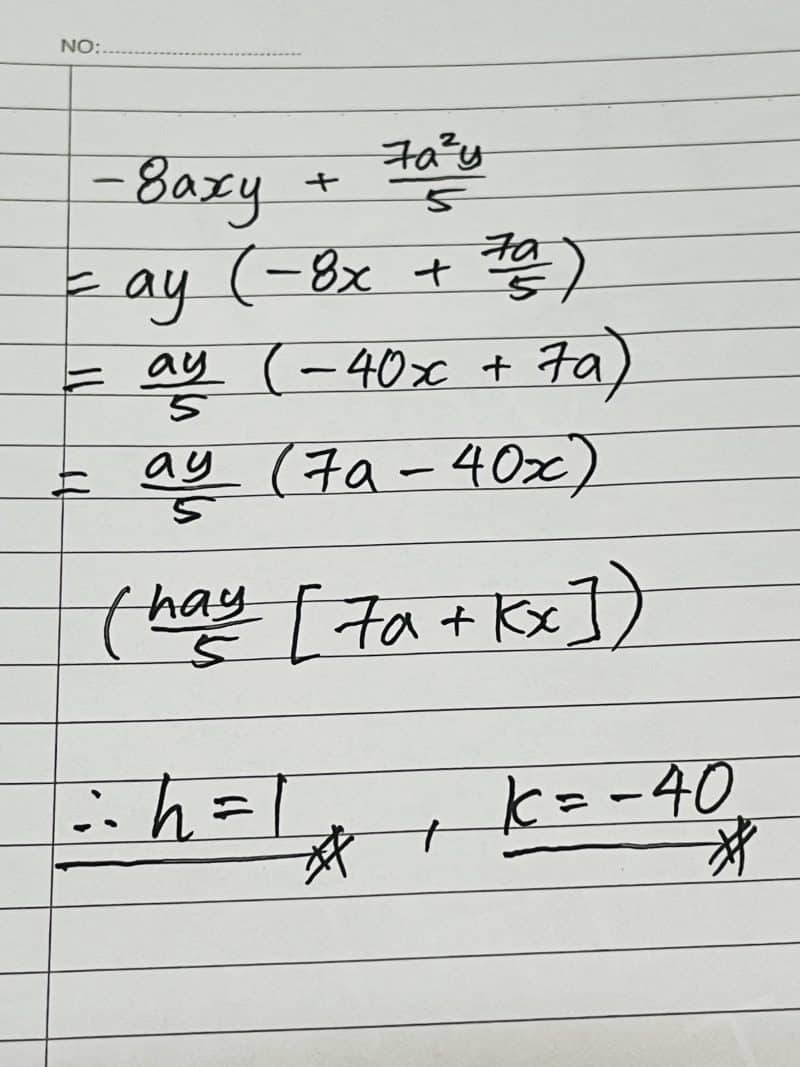 NO:
-8axy + 7a²y/5
= ay (-8x + 7a/5)
= ay/5 (-40x + 7a)
= ay/5 (7a - 40x)
(hay/5 [7a + kx])
∴ h = 1 , k = -40